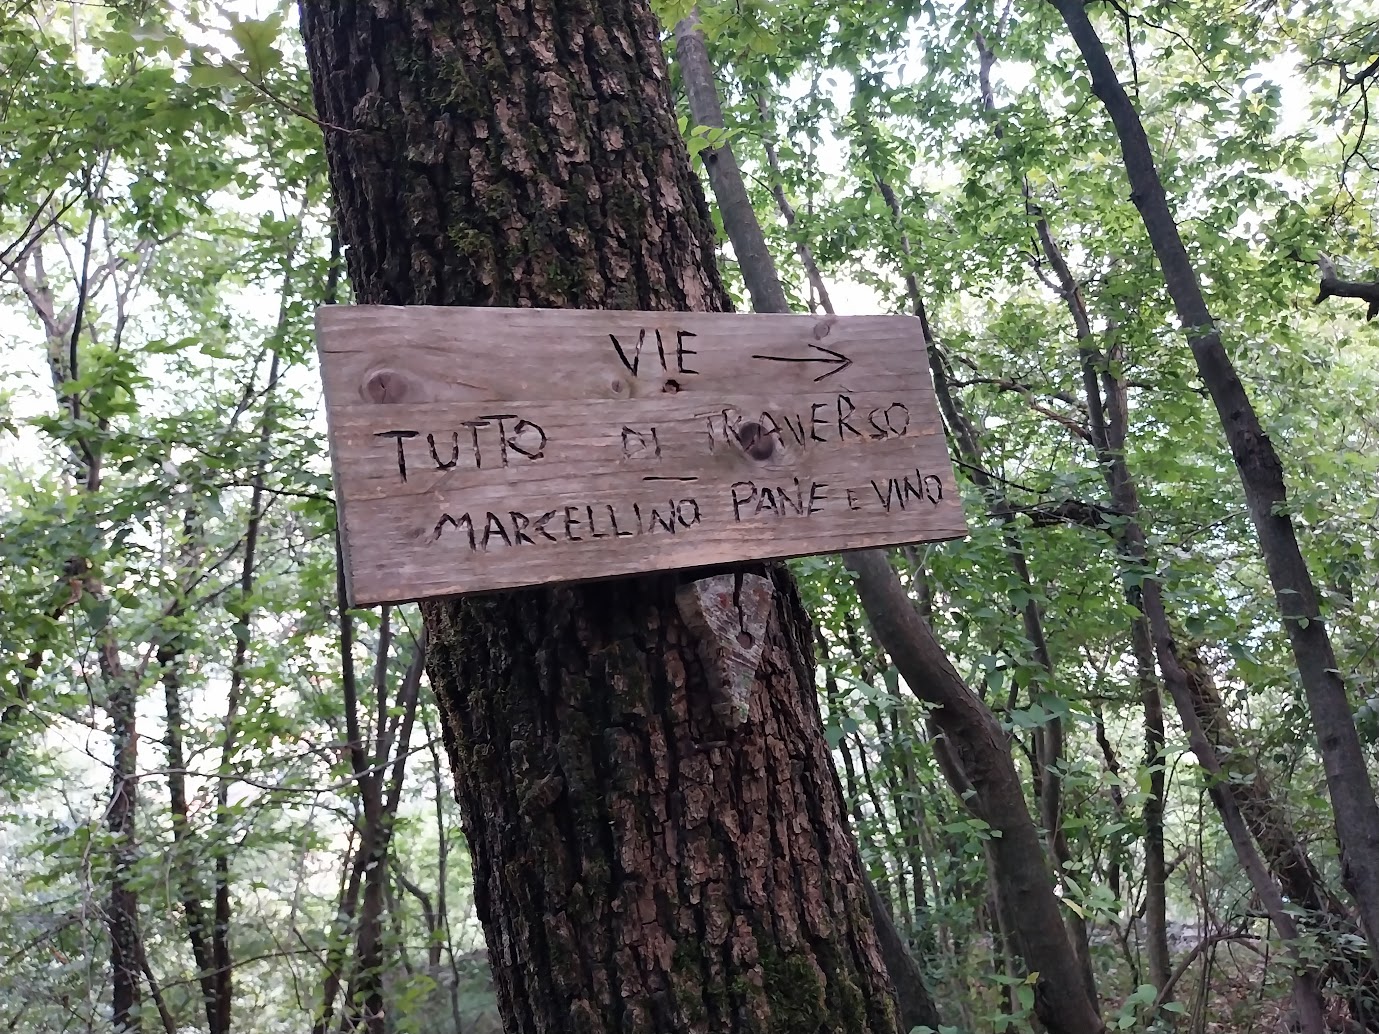 VIE →
TUTTO DI TRAVERSO
—
MARCELLINO PANE E VINO